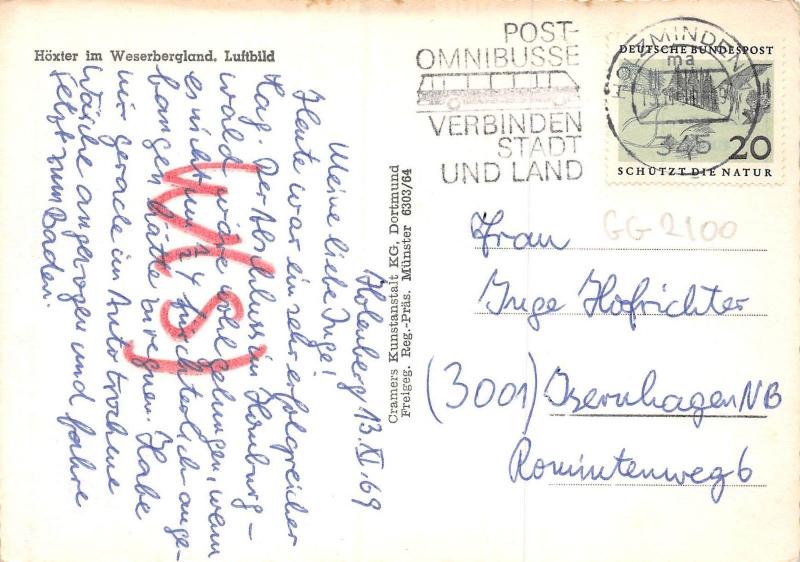 Höxter im Weserbergland. Luftbild
Holenberg 13.XI.69
Meine liebe Inge!
Heute war ein sehr erfolgreicher
Tag. Der Abschluss in Homburg-
wald wäre voll gelungen, wenn
es nicht um 14 fürchterlich ange-
fangen hätte zu regnen. Habe
mir gerade im Auto trockene
Wäsche angezogen und fahre
jetzt zum Baden.
WES)
Cramers Kunstanstalt KG. Dortmund
Freigeg. Reg.-Präs. Münster 6303/64
POST-
OMNIBUSSE
VERBINDEN
STADT
UND LAND
HOLZMINDEN
ma
345
DEUTSCHE BUNDESPOST
20
SCHÜTZT DIE NATUR
GG 2100
Frau
Inge Hofrichter
(3001) Isernhagen NB
Romintenweg 6